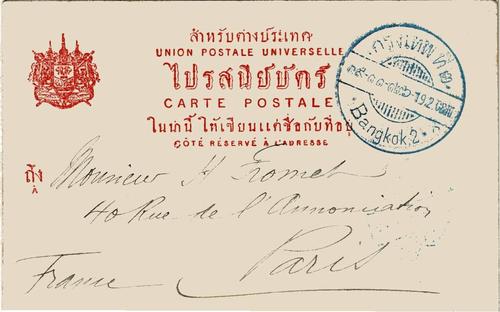 สำหรับต่างประเทศ
UNION POSTALE UNIVERSELLE
ไปรสนียบัตร์
CARTE POSTALE
ในน่านี้ ให้เขียนแต่ชื่อกับที่อยู่
CÔTÉ RÉSERVÉ A L'ADRESSE
กรุงเทพฯ ที่ ๒
Bangkok 2
ถึง
A
Monsieur H Fromet
40 Rue de l'Annonciation
Paris
France